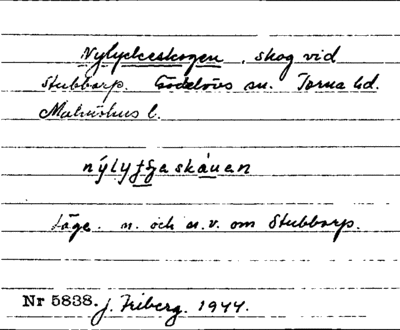 Nylyckeskogen, skog vid
Stubbarp. Gödelövs sn. Torna hd.
Malmöhus l.
nýlyʃʃaskáuan
Läge. n. och n.v. om Stubbarp.
Nr 5838. J. Friberg. 1944.